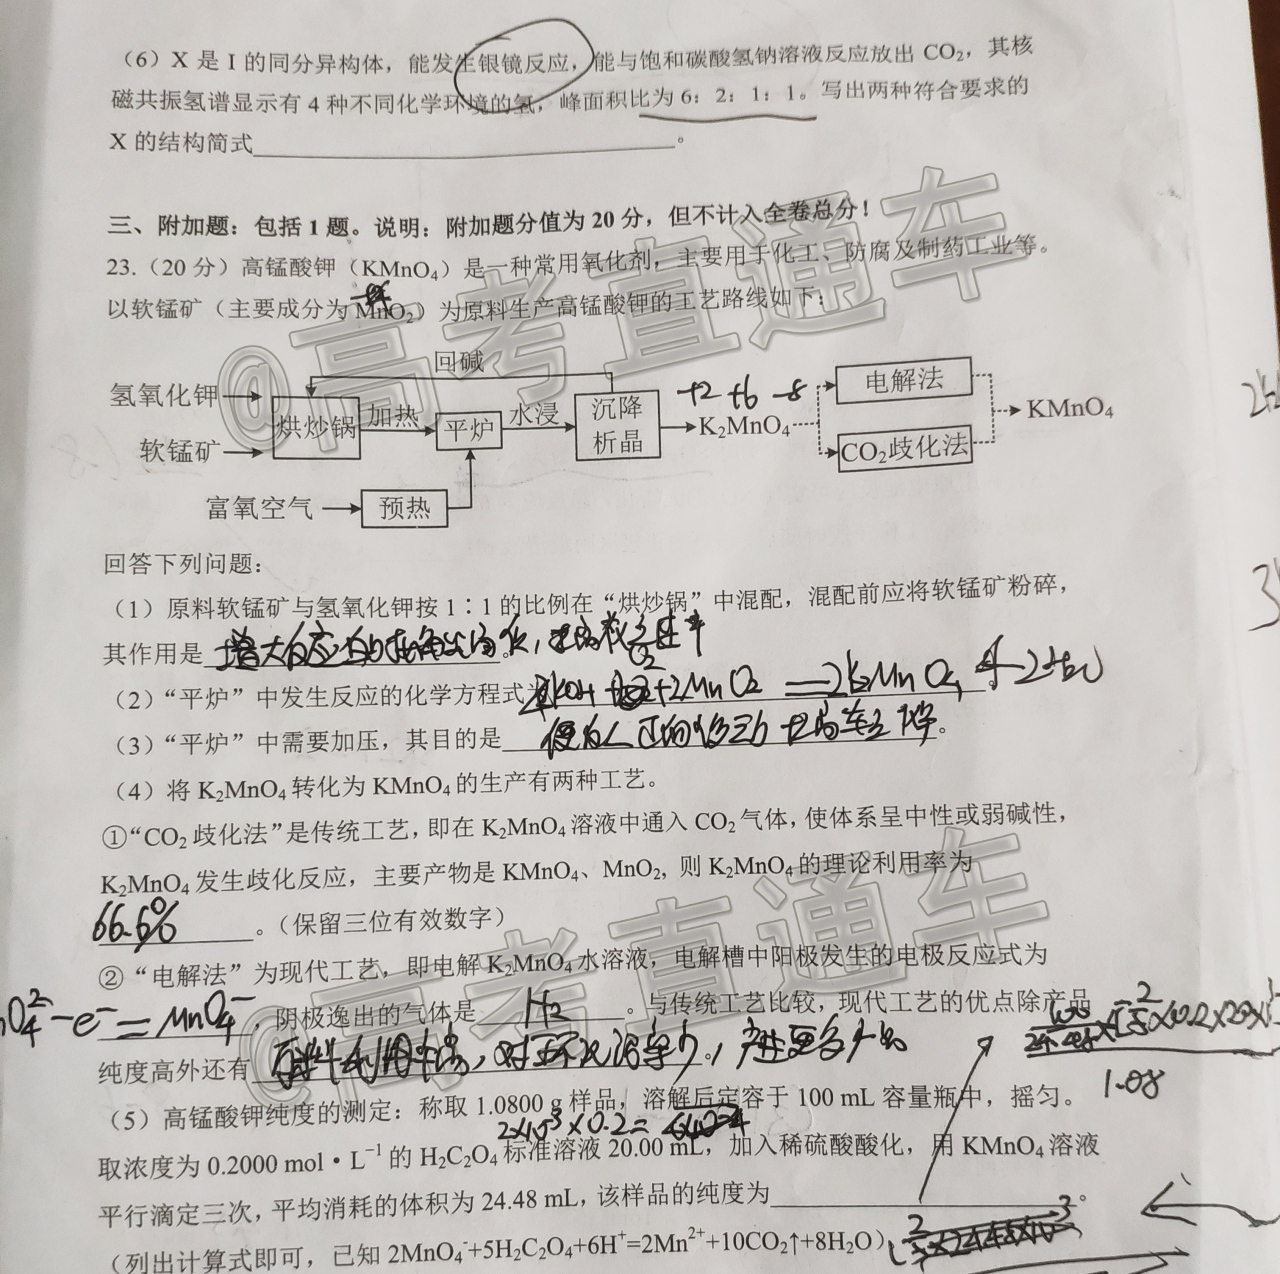 （6）X 是 I 的同分异构体，能发生银镜反应，能与饱和碳酸氢钠溶液反应放出 CO₂，其核
磁共振氢谱显示有 4 种不同化学环境的氢，峰面积比为 6：2：1：1。写出两种符合要求的
X 的结构简式________。
三、附加题：包括 1 题。说明：附加题分值为 20 分，但不计入全卷总分！
23.（20 分）高锰酸钾（KMnO₄）是一种常用氧化剂，主要用于化工、防腐及制药工业等。
以软锰矿（主要成分为 MnO₂）为原料生产高锰酸钾的工艺路线如下：
回碱
氢氧化钾
软锰矿
烘炒锅
加热
平炉
水浸
沉降
析晶
+2 +6 -8
K₂MnO₄
电解法
CO₂歧化法
KMnO₄
富氧空气
预热
回答下列问题：
（1）原料软锰矿与氢氧化钾按 1∶1 的比例在“烘炒锅”中混配，混配前应将软锰矿粉碎，
其作用是 增大反应
（2）“平炉”中发生反应的化学方程式为 4KOH +O₂+2MnO₂ = 2K₂MnO₄ + 2H₂O
（3）“平炉”中需要加压，其目的是
（4）将 K₂MnO₄ 转化为 KMnO₄ 的生产有两种工艺。
①“CO₂ 歧化法”是传统工艺，即在 K₂MnO₄ 溶液中通入 CO₂ 气体，使体系呈中性或弱碱性，
K₂MnO₄ 发生歧化反应，主要产物是 KMnO₄、MnO₂, 则 K₂MnO₄ 的理论利用率为
66.6% 。（保留三位有效数字）
②“电解法”为现代工艺，即电解 K₂MnO₄ 水溶液，电解槽中阳极发生的电极反应式为
nO₄²⁻ - e⁻ = MnO₄⁻ ，阴极逸出的气体是 H₂ 。与传统工艺比较，现代工艺的优点除产品
纯度高外还有 利用率高，对环境污染少。
1.08
（5）高锰酸钾纯度的测定：称取 1.0800 g 样品，溶解后定容于 100 mL 容量瓶中，摇匀。
取浓度为 0.2000 mol·L⁻¹ 的 H₂C₂O₄ 标准溶液 20.00 mL，加入稀硫酸酸化，用 KMnO₄ 溶液
平行滴定三次，平均消耗的体积为 24.48 mL，该样品的纯度为________。
（列出计算式即可，已知 2MnO₄⁻+5H₂C₂O₄+6H⁺=2Mn²⁺+10CO₂↑+8H₂O）
@高考直通车
@高考直通车